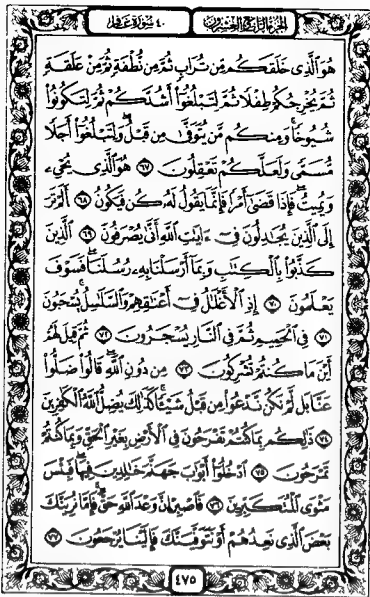 الجزء الرابع والعشرون
٤٠ سورة غافر
هُوَ ٱلَّذِى خَلَقَكُم مِّن تُرَابٍ ثُمَّ مِن نُّطْفَةٍ ثُمَّ مِنْ عَلَقَةٍ
ثُمَّ يُخْرِجُكُمْ طِفْلًا ثُمَّ لِتَبْلُغُوٓا۟ أَشُدَّكُمْ ثُمَّ لِتَكُونُوا۟
شُيُوخًا ۚ وَمِنكُم مَّن يُتَوَفَّىٰ مِن قَبْلُ ۖ وَلِتَبْلُغُوٓا۟ أَجَلًا
مُّسَمًّى وَلَعَلَّكُمْ تَعْقِلُونَ ٦٧ هُوَ ٱلَّذِى يُحْىِۦ
وَيُمِيتُ ۖ فَإِذَا قَضَىٰٓ أَمْرًا فَإِنَّمَا يَقُولُ لَهُۥ كُن فَيَكُونُ ٦٨ أَلَمْ تَرَ
إِلَى ٱلَّذِينَ يُجَٰدِلُونَ فِىٓ ءَايَٰتِ ٱللَّهِ أَنَّىٰ يُصْرَفُونَ ٦٩ ٱلَّذِينَ
كَذَّبُوا۟ بِٱلْكِتَٰبِ وَبِمَآ أَرْسَلْنَا بِهِۦ رُسُلَنَا ۖ فَسَوْفَ
يَعْلَمُونَ ٧٠ إِذِ ٱلْأَغْلَٰلُ فِىٓ أَعْنَٰقِهِمْ وَٱلسَّلَٰسِلُ يُسْحَبُونَ
٧١ فِى ٱلْحَمِيمِ ثُمَّ فِى ٱلنَّارِ يُسْجَرُونَ ٧٢ ثُمَّ قِيلَ لَهُمْ
أَيْنَ مَا كُنتُمْ تُشْرِكُونَ ٧٣ مِن دُونِ ٱللَّهِ ۖ قَالُوا۟ ضَلُّوا۟
عَنَّا بَل لَّمْ نَكُن نَّدْعُوا۟ مِن قَبْلُ شَيْـًٔا ۚ كَذَٰلِكَ يُضِلُّ ٱللَّهُ ٱلْكَٰفِرِينَ
٧٤ ذَٰلِكُم بِمَا كُنتُمْ تَفْرَحُونَ فِى ٱلْأَرْضِ بِغَيْرِ ٱلْحَقِّ وَبِمَا كُنتُمْ
تَمْرَحُونَ ٧٥ ٱدْخُلُوٓا۟ أَبْوَٰبَ جَهَنَّمَ خَٰلِدِينَ فِيهَا ۖ فَبِئْسَ
مَثْوَى ٱلْمُتَكَبِّرِينَ ٧٦ فَٱصْبِرْ إِنَّ وَعْدَ ٱللَّهِ حَقٌّ ۚ فَإِمَّا نُرِيَنَّكَ
بَعْضَ ٱلَّذِى نَعِدُهُمْ أَوْ نَتَوَفَّيَنَّكَ فَإِلَيْنَا يُرْجَعُونَ ٧٧
٤٧٥